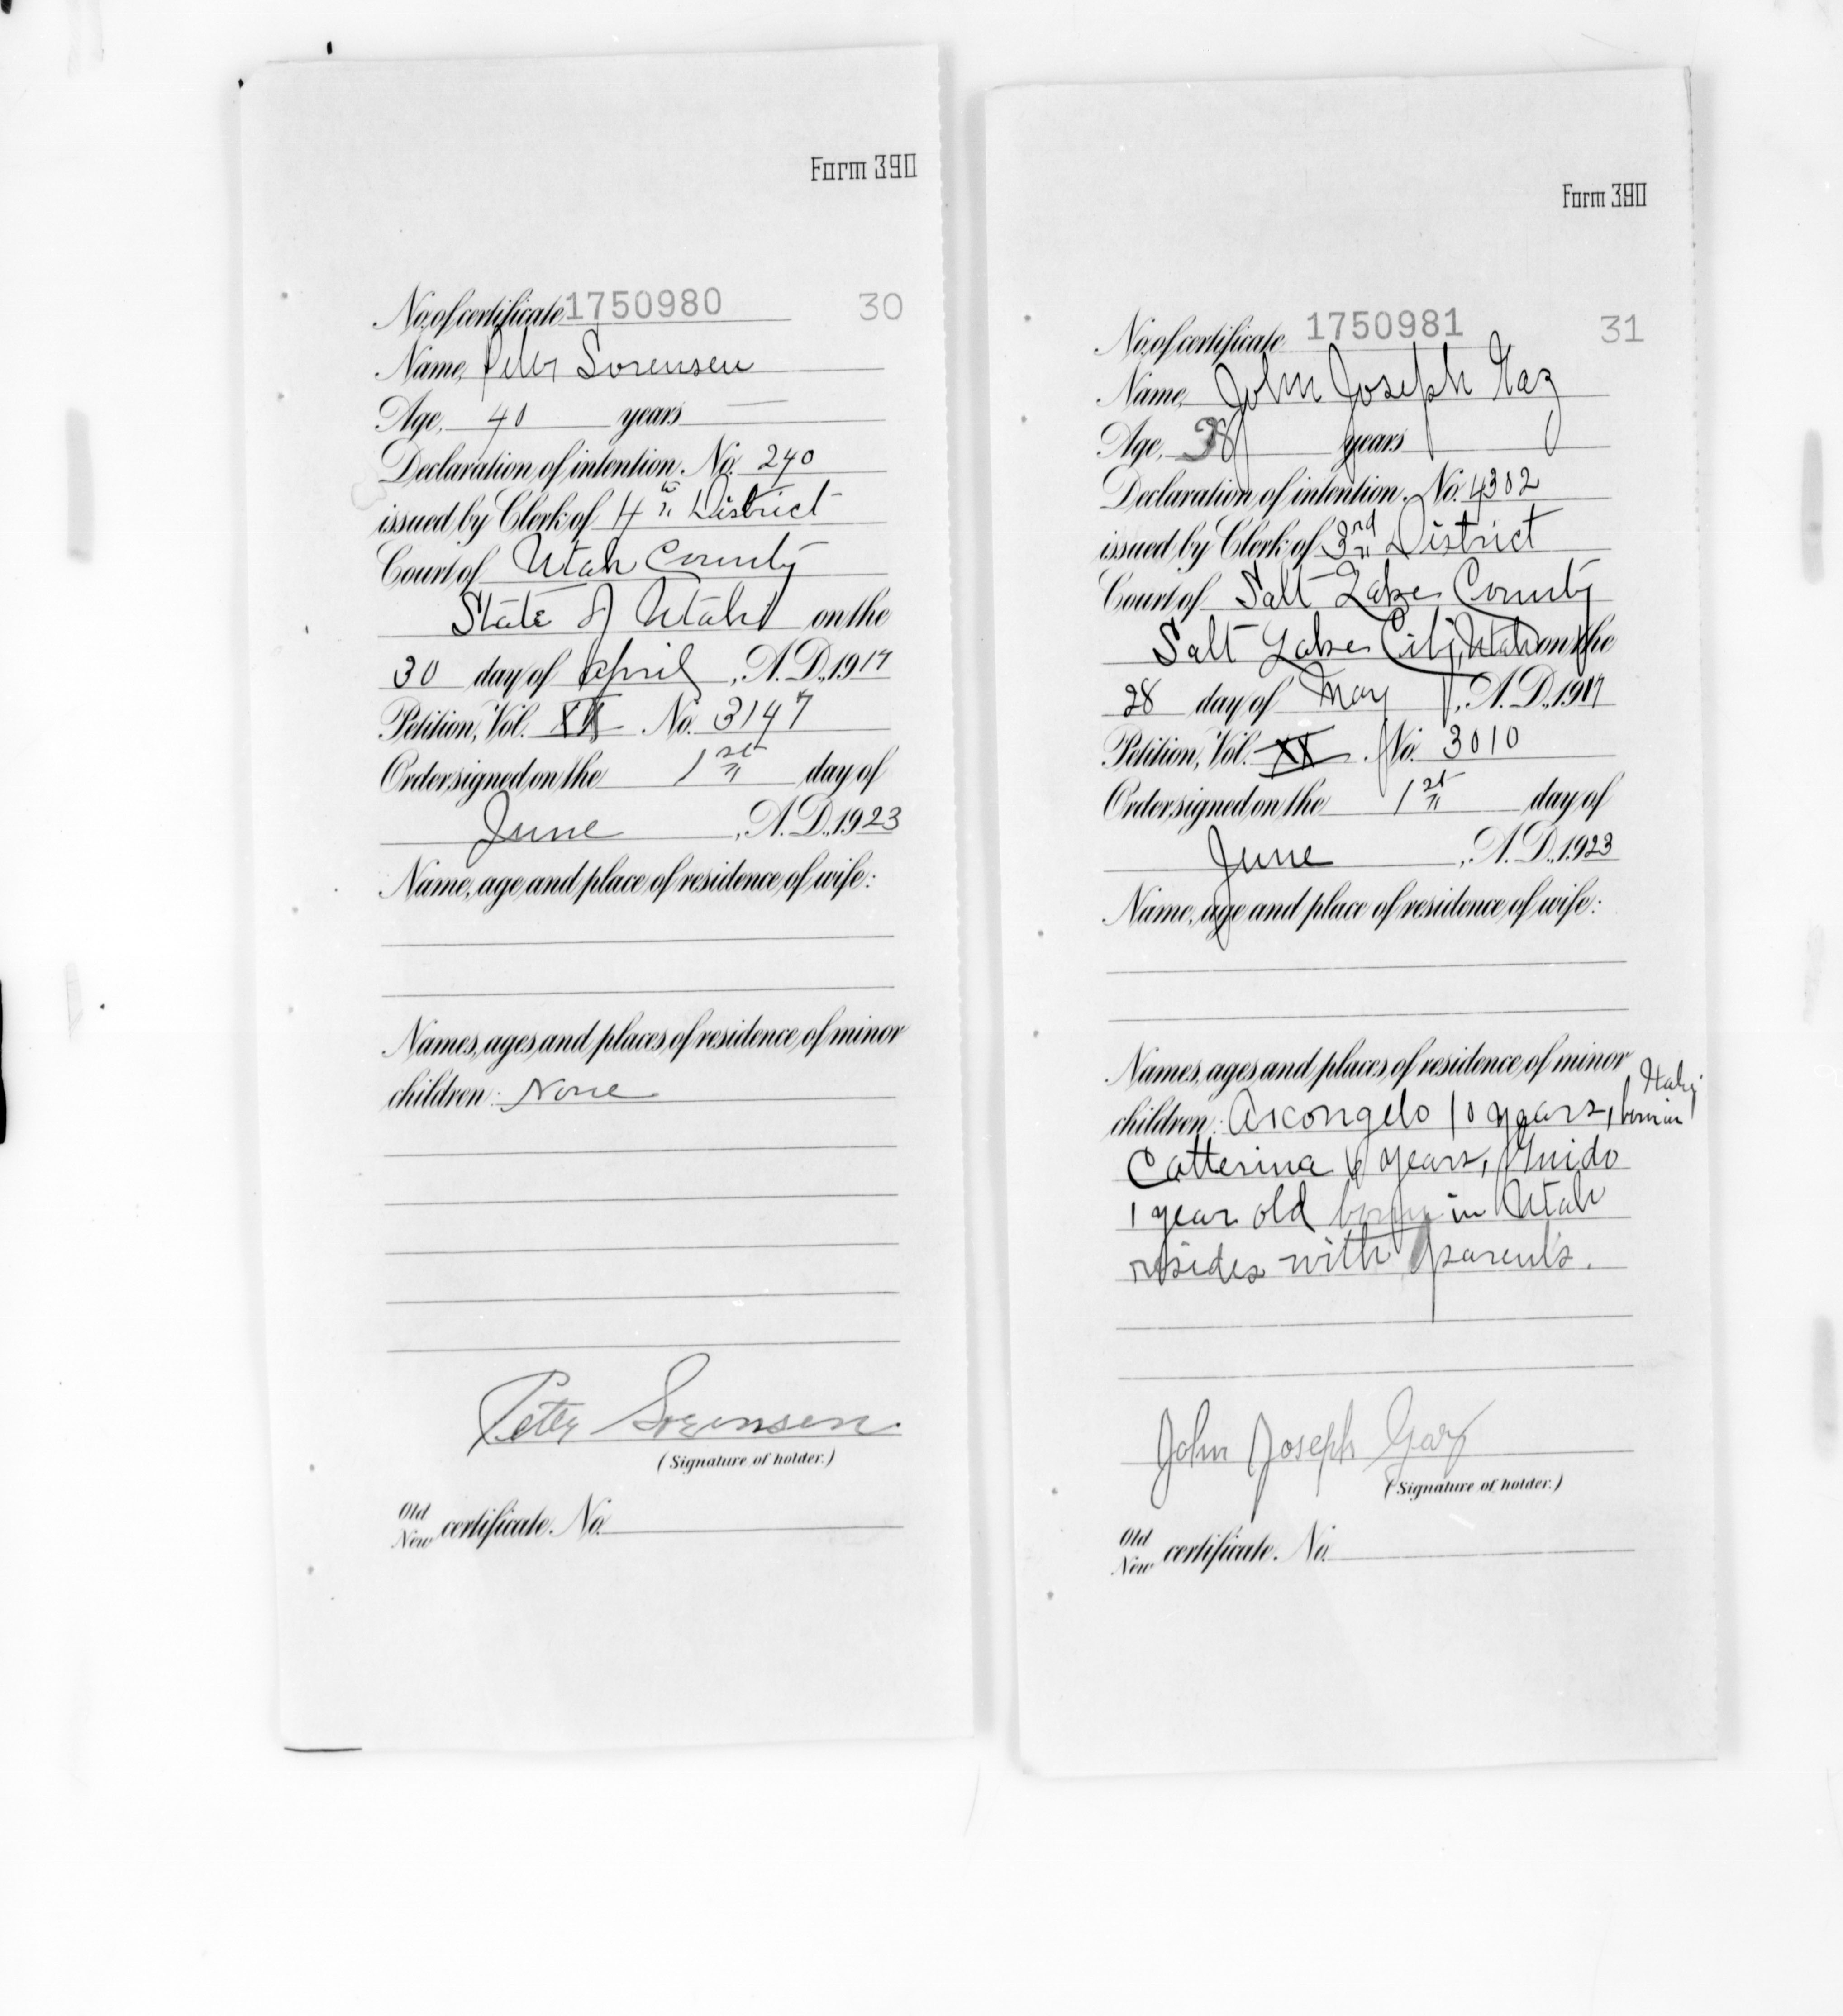 Form 390
No. of certificate 1750980 30
Name, Peter Sorensen
Age, 40 years
Declaration of intention. No. 240
issued by Clerk of 4th District
Court of Utah County
State of Utah on the
30 day of April, A.D. 1917
Petition, Vol. No. 3147
Order signed on the 1st day of
June, A.D. 1923
Name, age and place of residence of wife:
Names, ages and places of residence of minor
children: None
Peter Sorensen
(Signature of holder.)
Old
New certificate. No.
Form 390
No. of certificate 1750981 31
Name, John Joseph Gaz
Age, 38 years
Declaration of intention. No. 4302
issued by Clerk of 3rd District
Court of Salt Lake County
Salt Lake City, Utah on the
28 day of May, A.D. 1917
Petition, Vol. XX No. 3010
Order signed on the 1st day of
June, A.D. 1923
Name, age and place of residence of wife:
Names, ages and places of residence of minor
children: Arcongelo 10 years, born in Italy
Catterina 6 years, Guido
1 year old born in Utah
resides with parents.
John Joseph Gaz
(Signature of holder.)
Old
New certificate. No.